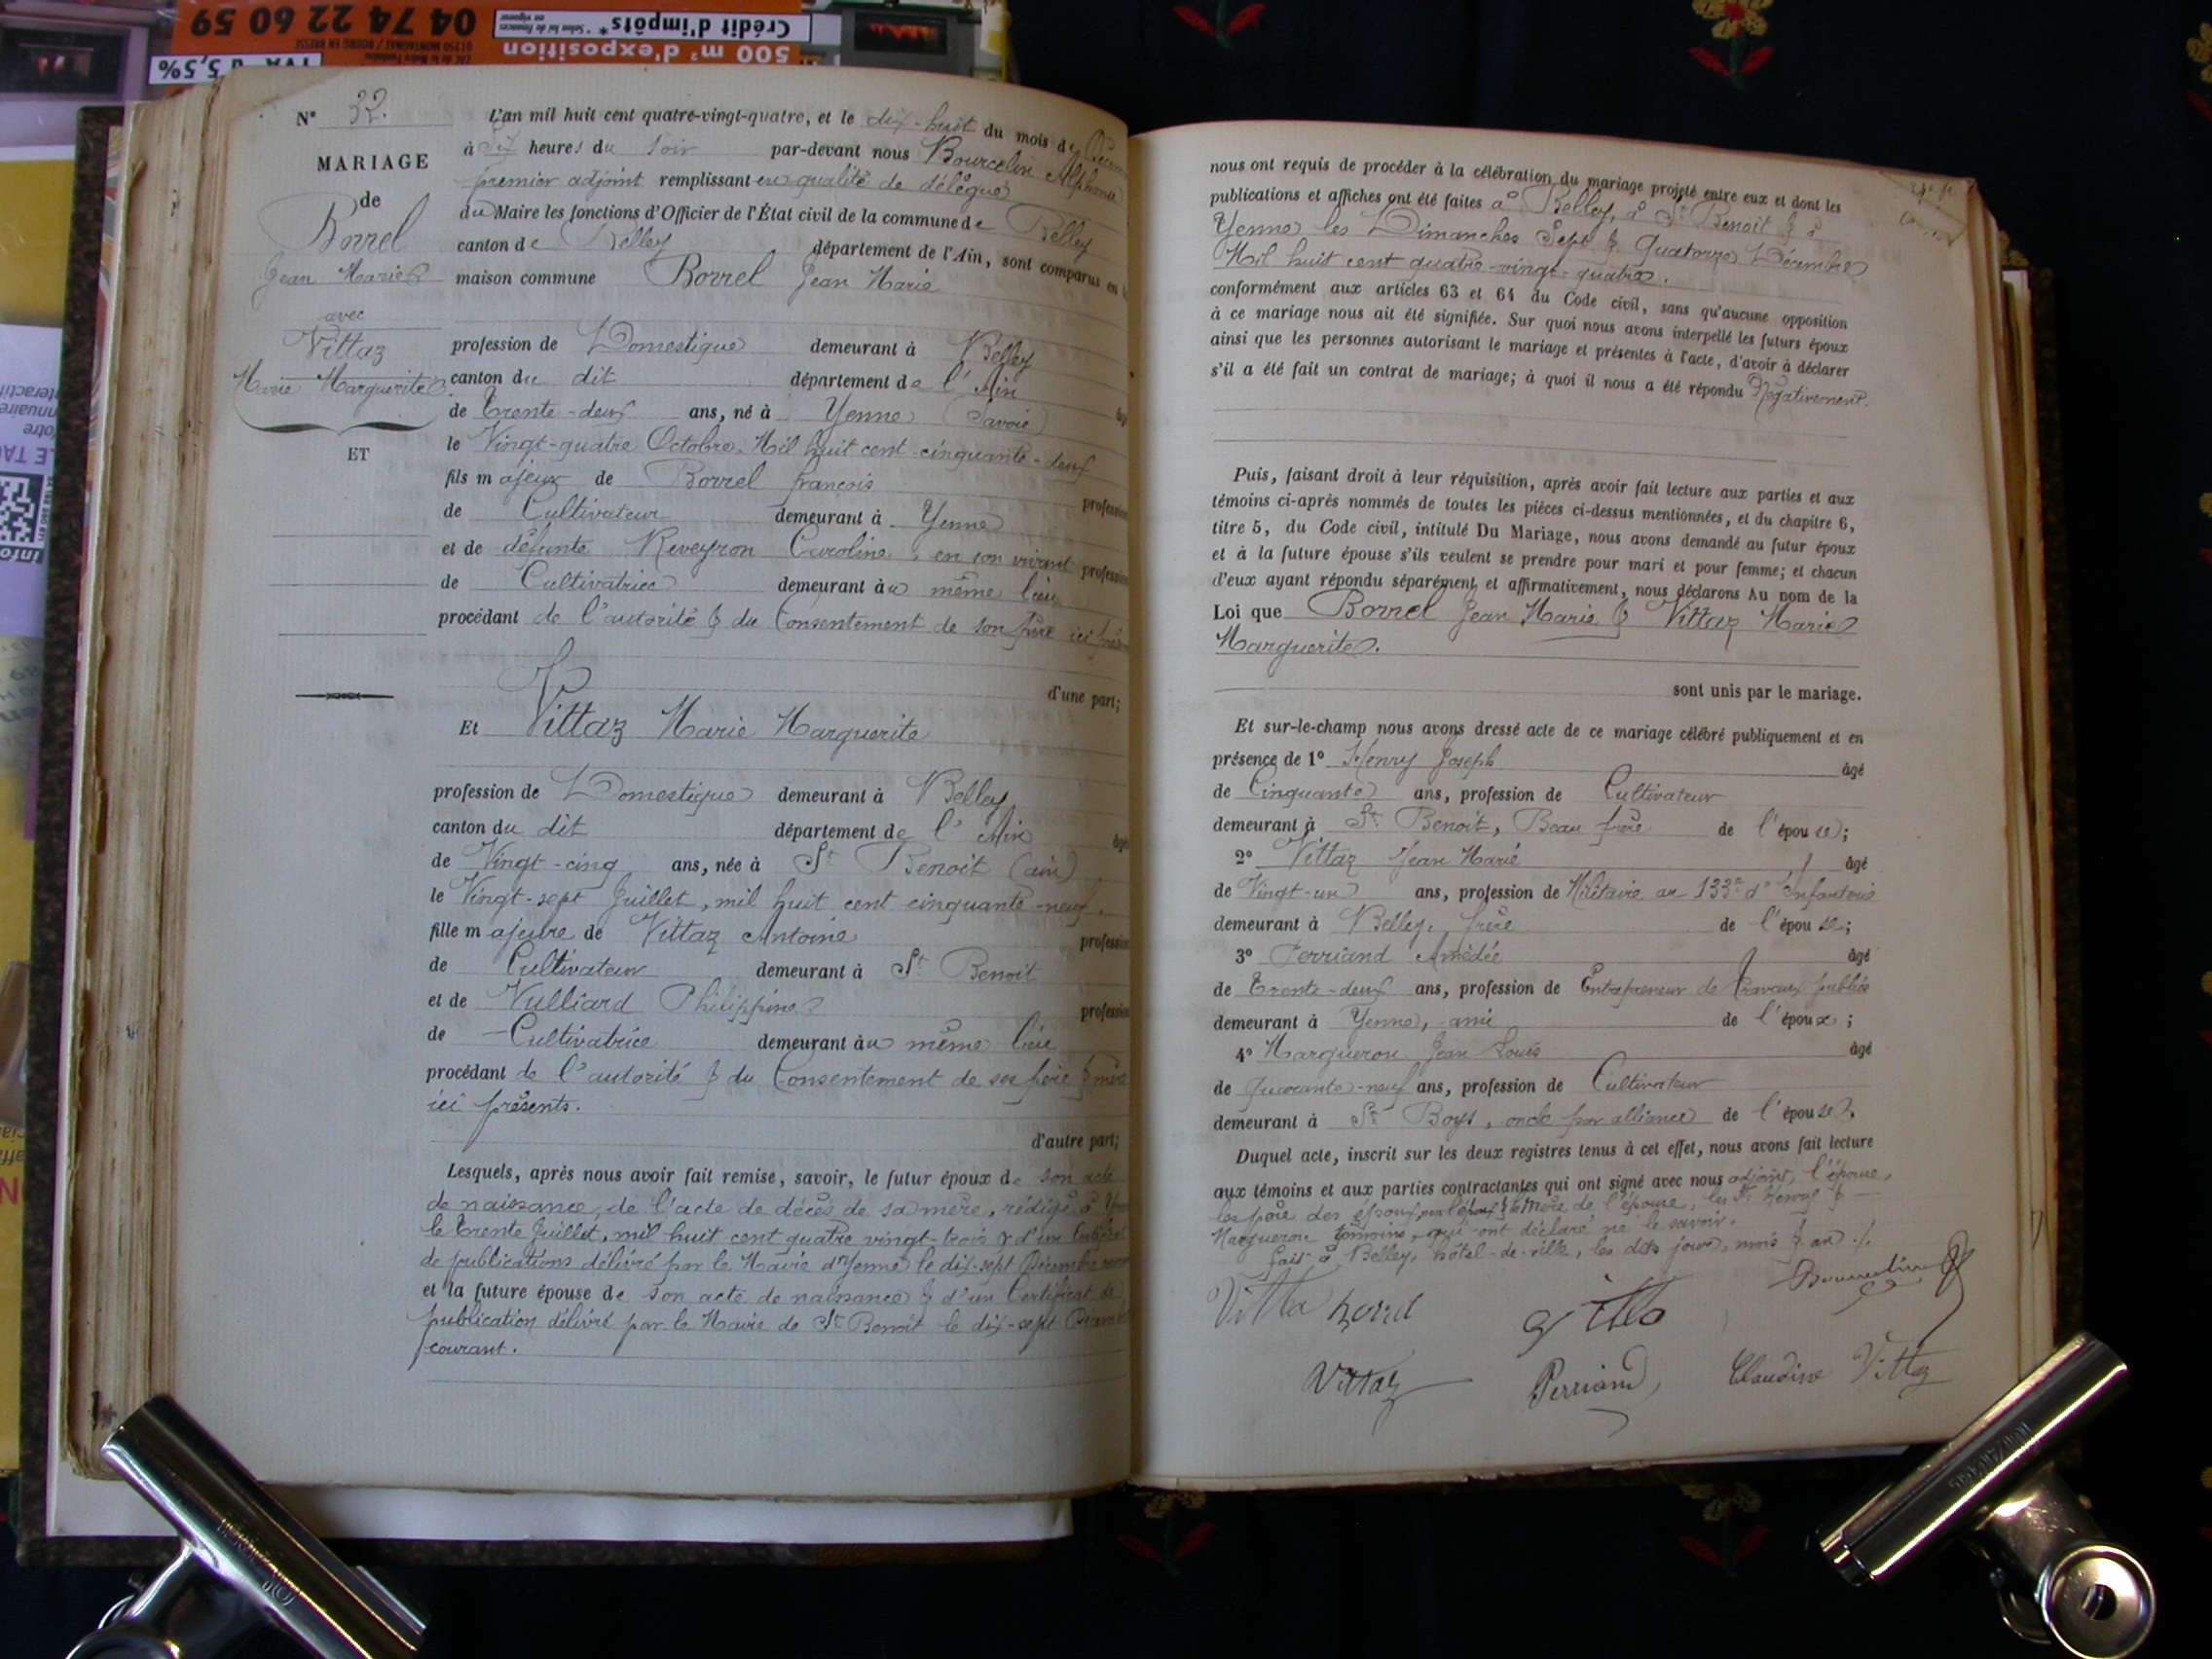 04 74 22 60 59
Crédit d'impôts*
500 m² d'exposition
5,5%
N° 32.
MARIAGE
de
Borrel
Jean Marie
avec
Vittaz
Marie Marguerite
ET
L'an mil huit cent quatre-vingt-quatre, et le dix-huit du mois de
à six heures du soir par-devant nous Bourcelin Alphonse
premier adjoint remplissant en qualité de délégué
du Maire les fonctions d'Officier de l'État civil de la commune de Belley
canton de Belley département de l'Ain, sont comparus en
maison commune Borrel Jean Marie
profession de Domestique demeurant à Belley
canton du dit département de l'Ain
de Trente-deux ans, né à Yenne (Savoie)
le Vingt-quatre Octobre Mil huit cent cinquante-deux
fils majeur de Borrel françois
de Cultivateur demeurant à Yenne
et de défunte Reveyron Caroline, en son vivant
de Cultivatrice demeurant au même lieu
procédant de l'autorité & du Consentement de son père ici
d'une part;
Et Vittaz Marie Marguerite
profession de Domestique demeurant à Belley
canton du dit département de l'Ain
de Vingt-cinq ans, née à St Benoit (ain)
le Vingt-sept Juillet, mil huit cent cinquante-neuf.
fille majeure de Vittaz Antoine
de Cultivateur demeurant à St Benoit
et de Vulliard Philippine
de Cultivatrice demeurant au même lieu
procédant de l'autorité & du Consentement de ses père & mère
ici présents.
d'autre part;
Lesquels, après nous avoir fait remise, savoir, le futur époux de son acte
de naissance, de l'acte de décès de sa mère, rédigé à
le trente Juillet, mil huit cent quatre vingt-trois & d'un Certificat
de publications délivré par la Mairie d'Yenne le dix-sept Décembre
et la future épouse de son acte de naissance & d'un Certificat de
publication délivré par la Mairie de St Benoit le dix-sept Décembre
courant.
nous ont requis de procéder à la célébration du mariage projeté entre eux et dont les
publications et affiches ont été faites à Belley, à St Benoit & à
Yenne les Dimanches Sept & Quatorze Décembre
Mil huit cent quatre-vingt-quatre.
conformément aux articles 63 et 64 du Code civil, sans qu'aucune opposition
à ce mariage nous ait été signifiée. Sur quoi nous avons interpellé les futurs époux
ainsi que les personnes autorisant le mariage et présentes à l'acte, d'avoir à déclarer
s'il a été fait un contrat de mariage; à quoi il nous a été répondu Négativement.
Puis, faisant droit à leur réquisition, après avoir fait lecture aux parties et aux
témoins ci-après nommés de toutes les pièces ci-dessus mentionnées, et du chapitre 6,
titre 5, du Code civil, intitulé Du Mariage, nous avons demandé au futur époux
et à la future épouse s'ils veulent se prendre pour mari et pour femme; et chacun
d'eux ayant répondu séparément et affirmativement, nous déclarons Au nom de la
Loi que Borrel Jean Marie & Vittaz Marie
Marguerite.
sont unis par le mariage.
Et sur-le-champ nous avons dressé acte de ce mariage célébré publiquement et en
présence de 1° Henry Joseph âgé
de Cinquante ans, profession de Cultivateur
demeurant à St Benoit, Beau frère de l'épouse;
2° Vittaz Jean Marie âgé
de Vingt-un ans, profession de Militaire au 133e d'Infanterie
demeurant à Belley, frère de l'épouse;
3° Perriand Amédée âgé
de Trente-deux ans, profession de Entrepreneur de Travaux publics
demeurant à Yenne, ami de l'époux;
4° Margueron Jean Louis âgé
de Quarante-neuf ans, profession de Cultivateur
demeurant à St Boys, oncle par alliance de l'épouse.
Duquel acte, inscrit sur les deux registres tenus à cet effet, nous avons fait lecture
aux témoins et aux parties contractantes qui ont signé avec nous adjoint, l'épouse,
la mère de l'épouse, les Srs Henry &
Margueron témoins, qui ont déclaré ne le savoir.
fait à Belley, hôtel-de-ville, les dits jour, mois & an ./.
Vittaz
Perriand
Claudine Vittaz